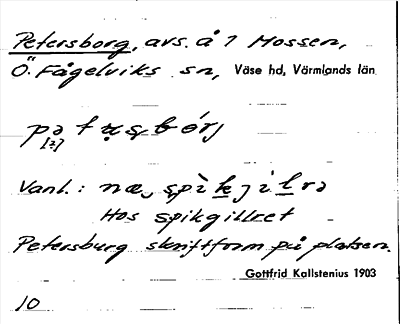 Petersborg, avs. å 7 Mossen,
Ö. Fågelviks sn, Väse hd, Värmlands län
Vanl.:
Hos spikgillret
Petersburg skriftform på platsen.
Gottfrid Kallstenius 1903
10